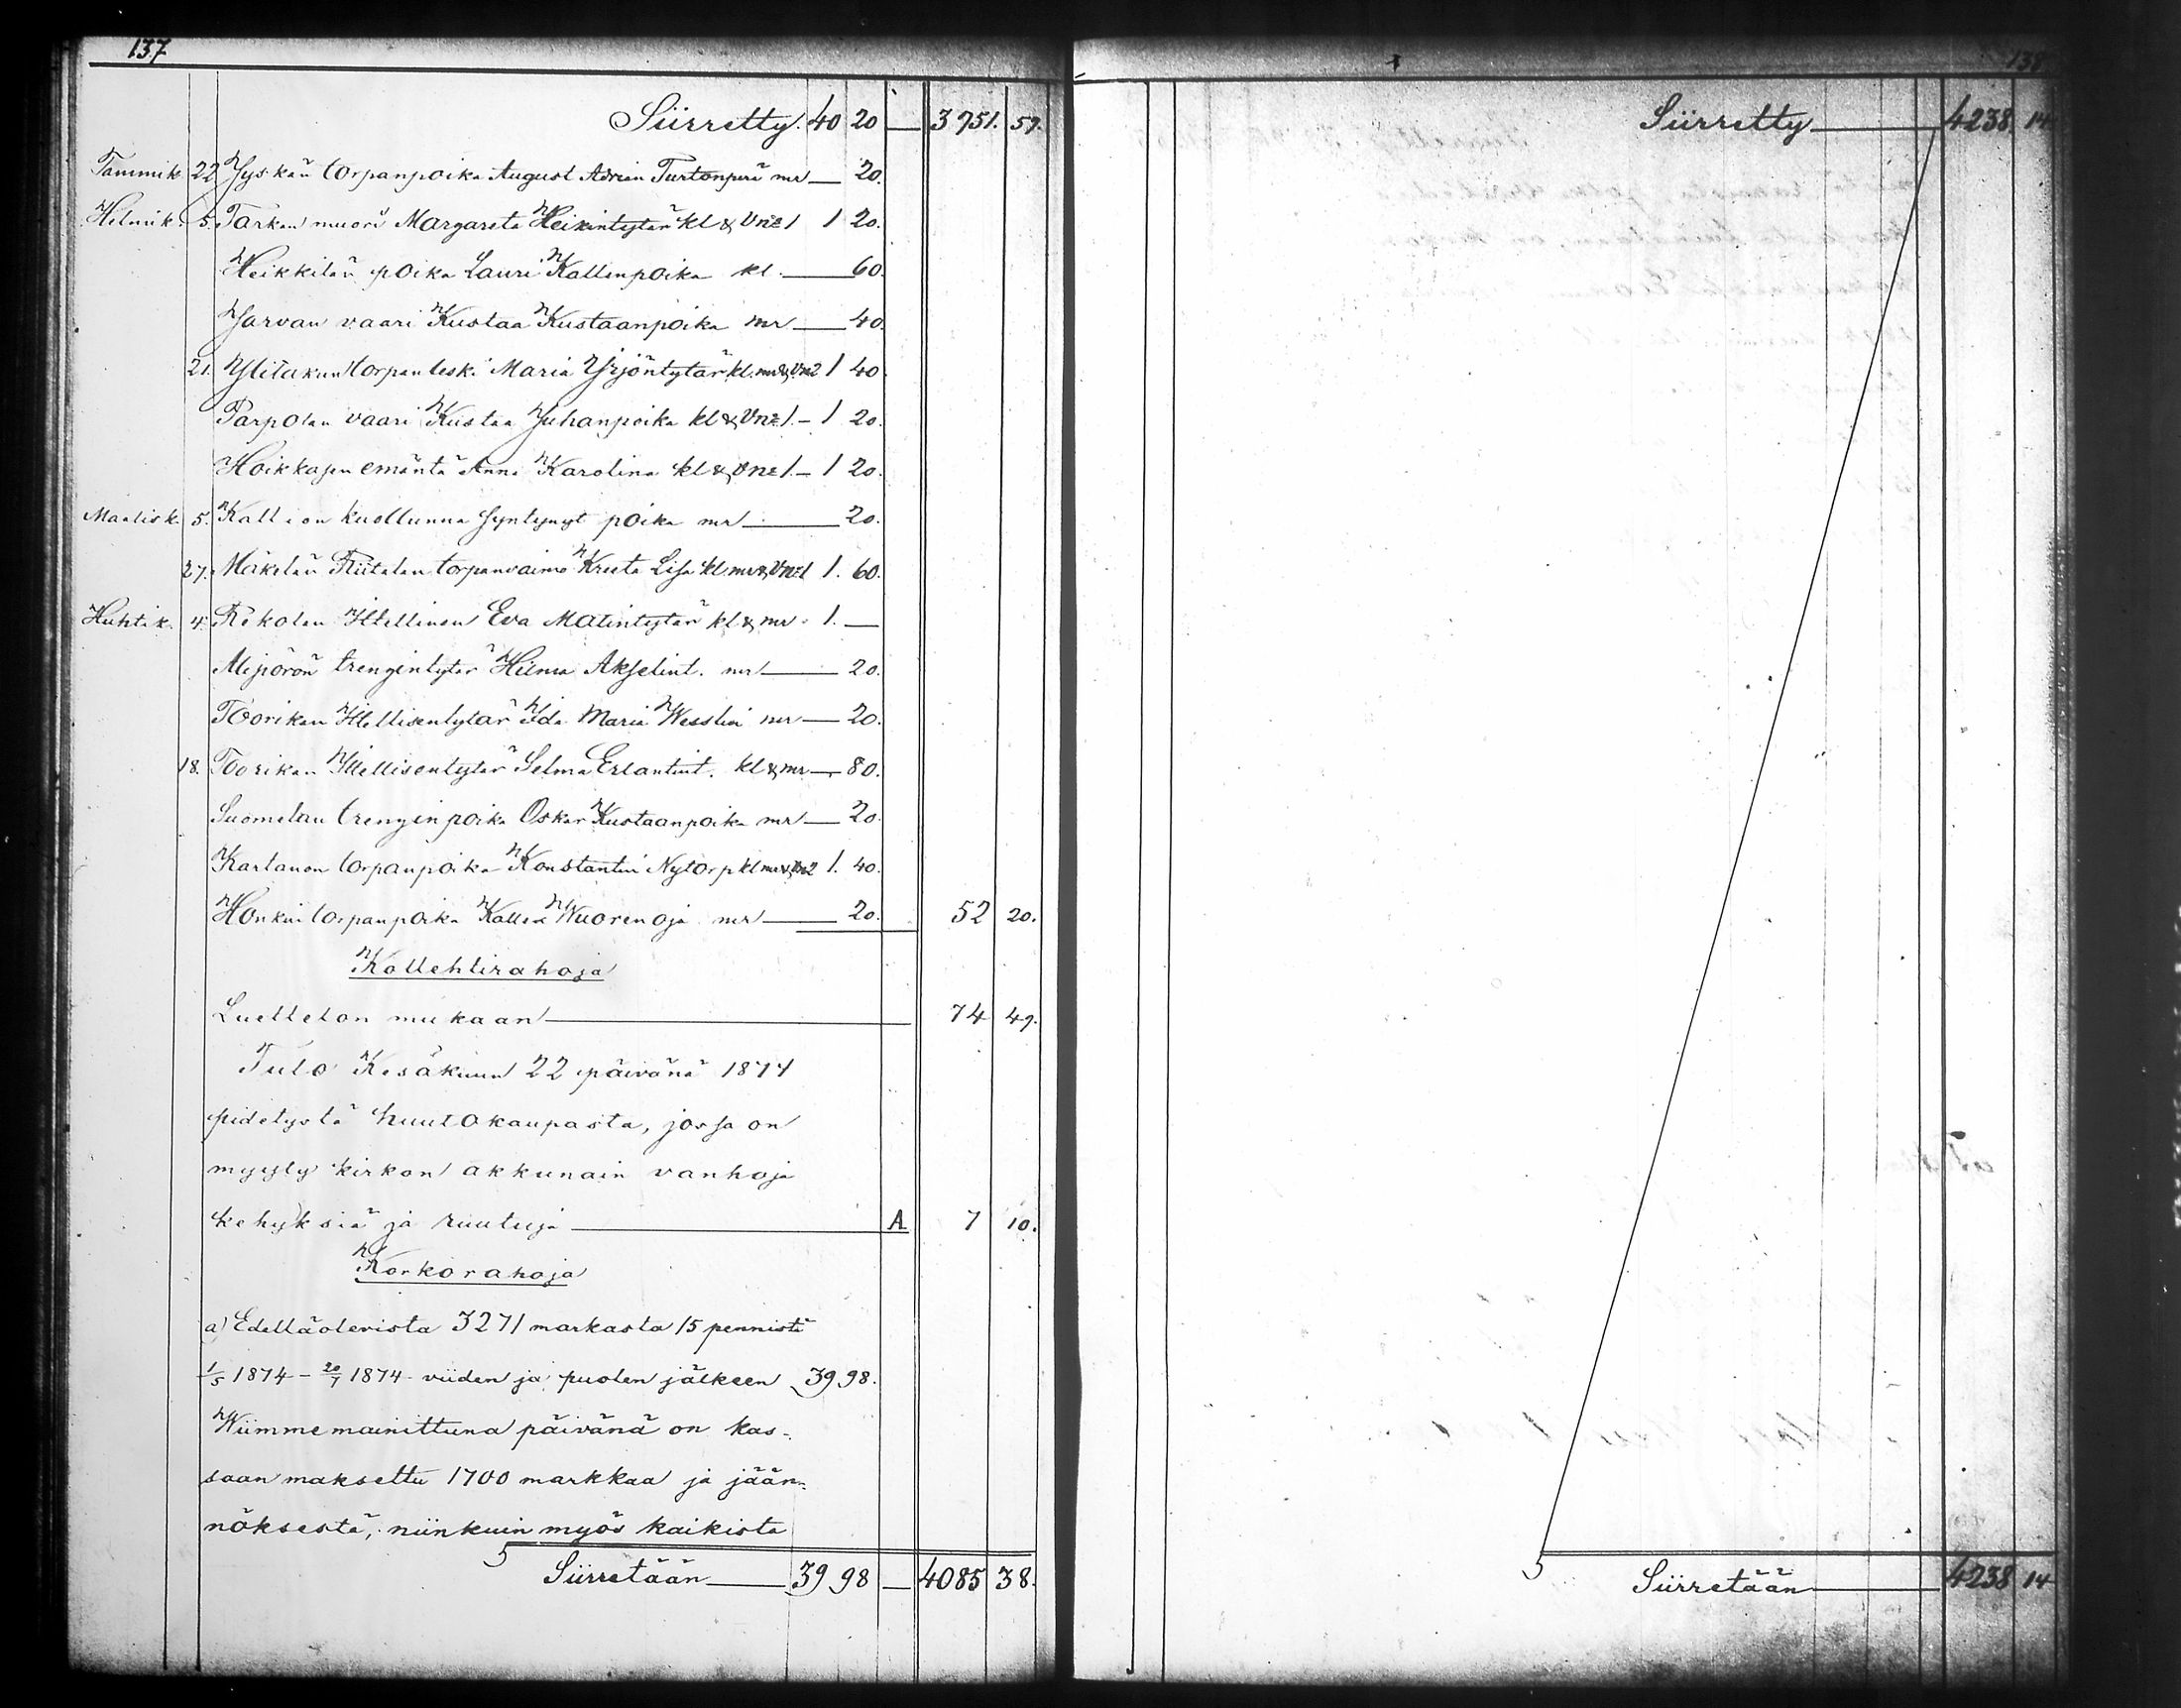 137
Siirretty. 40 20 — 3951. 59.
Tammik 22 Jyskän torpanpoika August Adrian Turtonperä mr — 20.
Helmik. 5. Tarkan muori Margareta Heikintytär kl & Vne 1 1 20.
Heikkilän poika Lauri Kallenpoika kl. — 60.
Jarvan vaari Kustaa Kustaanpoika mr — 40.
21. Ylitakun torpanleski Maria Yrjöntytär kl. mr & Vne 2 1 40.
Parpolan vaari Kustaa Juhanpoika kl & Vne 1. – 1 20.
Hoikkasen emäntä Anna Karolina kl & Vne 1. – 1 20.
Maalisk. 5. Kallion kuolluna syntynyt poika mr — 20.
27. Mäkelän Riitalan torpanvaimo Kreeta Lisa kl mr & Vne 1 1. 60.
Huhtik. 4. Rekolan Itellinen Eva Matintytär kl & mr. 1. —
Mejörön trengintytär Hilma Akselint. mr — 20.
Toorikan Itellisentytär Ida Maria Wesslin mr — 20.
18. Toorikan Itellisentytär Selma Erlantint. kl & mr — 80.
Suomelan trenginpoika Oskar Kustaanpoika mr — 20.
Kartanon torpanpoika Konstantin Nytorp kl mr & Vne 2 1. 40.
Honkin torpanpoika Kalle Wuorenoja mr — 20. 52 20.
Kollehtirahoja
Luettelon mukaan — 74 49.
Tulo Kesäkuun 22 päivänä 1874
pidetystä huutokaupasta, jossa on
myyty kirkon akkunain vanhoja
kehyksiä ja ruutuja — A 7 10.
Korkorahoja
a) Edelläolevista 3271 markasta 15 pennistä
1/5 1874 – 20/7 1874 viiden ja puolen jälkeen 39 98.
Wiimmemainittuna päivänä on kas-
saan maksettu 1700 markkaa ja jään-
nöksestä, niinkuin myös kaikista
Siirretään — 39 98 — 4085 38.
138
Siirretty — 4238 14
Siirretään — 4238 14